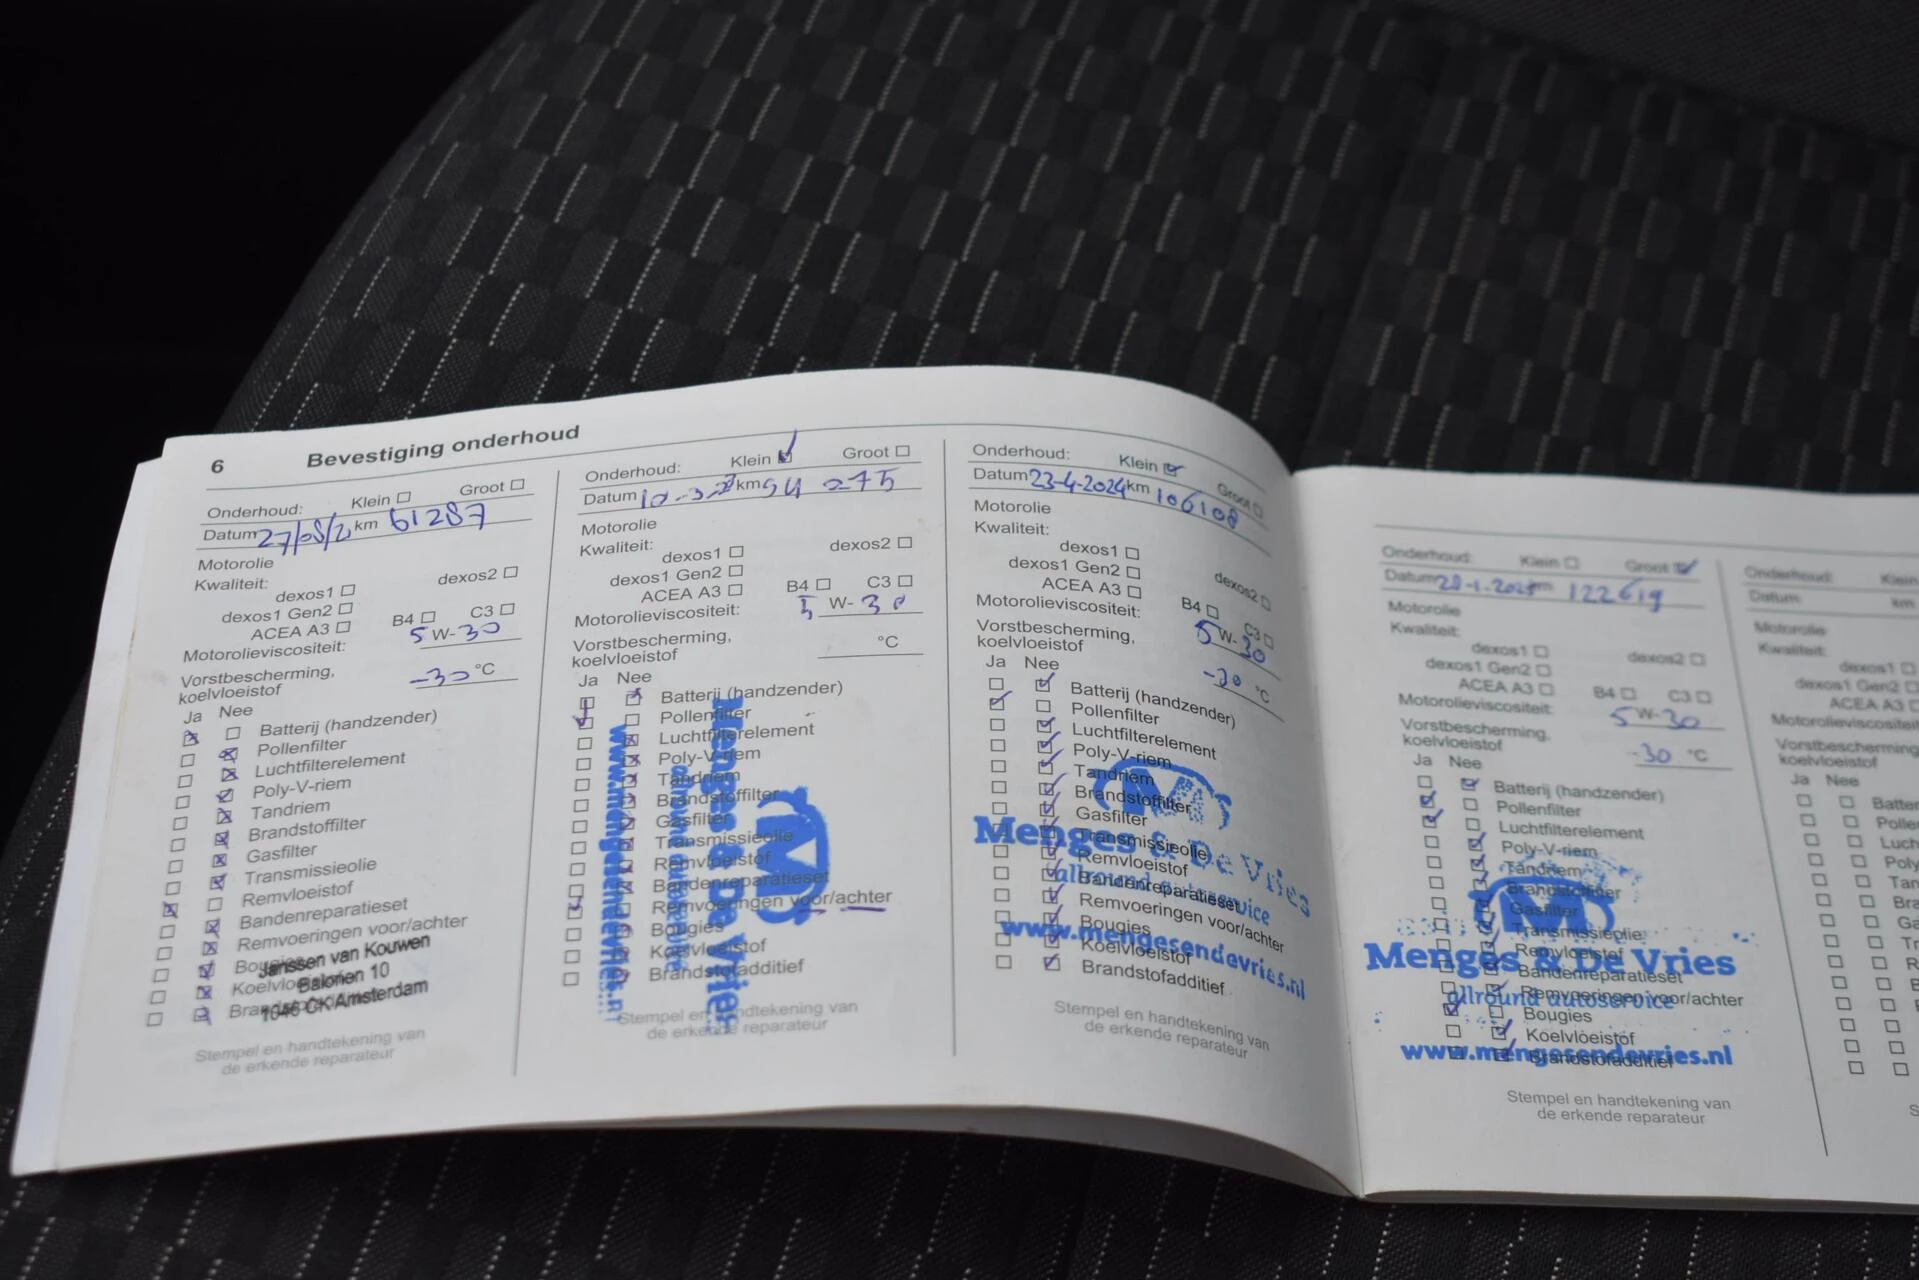 6 Bevestiging onderhoud
Onderhoud: Klein Groot
Datum 27/08/2 km 61287
Motorolie
Kwaliteit:
dexos1 dexos2
dexos1 Gen2
ACEA A3 B4 C3
Motorolieviscositeit: 5 W-30
Vorstbescherming,
koelvloeistof -30 °C
Ja Nee
Batterij (handzender)
Pollenfilter
Luchtfilterelement
Poly-V-riem
Tandriem
Brandstoffilter
Gasfilter
Transmissieolie
Remvloeistof
Bandenreparatieset
Remvoeringen voor/achter
Janssen van Kouwen
Balorien 10
1046 CK Amsterdam
Stempel en handtekening van
de erkende reparateur
Onderhoud: Klein Groot
Datum 10-3- km 94 275
Motorolie
Kwaliteit:
dexos1 dexos2
dexos1 Gen2
ACEA A3 B4 C3
Motorolieviscositeit: 5 W-30
Vorstbescherming,
koelvloeistof °C
Ja Nee
Batterij (handzender)
Pollenfilter
Luchtfilterelement
Poly-V-riem
Tandriem
Brandstoffilter
Gasfilter
Transmissieolie
Remvloeistof
Bandenreparatieset
Remvoeringen voor/achter
Bougies
Koelvloeistof
Brandstofadditief
Menges & De Vries
allround autoservice
www.mengesendevries.nl
Stempel en handtekening van
de erkende reparateur
Onderhoud: Klein Groot
Datum 23-4-2024 km 106108
Motorolie
Kwaliteit:
dexos1 dexos2
dexos1 Gen2
ACEA A3 B4 C3
Motorolieviscositeit: 5 W-30
Vorstbescherming,
koelvloeistof -30 °C
Ja Nee
Batterij (handzender)
Pollenfilter
Luchtfilterelement
Poly-V-riem
Tandriem
Brandstoffilter
Gasfilter
Transmissieolie
Remvloeistof
Bandenreparatieset
Remvoeringen voor/achter
Bougies
Koelvloeistof
Brandstofadditief
Menges & De Vries
allround autoservice
www.mengesendevries.nl
Stempel en handtekening van
de erkende reparateur
Onderhoud: Klein Groot
Datum km 122619
Motorolie
Kwaliteit:
dexos1 dexos2
dexos1 Gen2
ACEA A3 B4 C3
Motorolieviscositeit: 5 W-30
Vorstbescherming,
koelvloeistof -30 °C
Ja Nee
Batterij (handzender)
Pollenfilter
Luchtfilterelement
Poly-V-riem
Tandriem
Brandstoffilter
Gasfilter
Transmissieolie
Remvloeistof
Bandenreparatieset
Remvoeringen voor/achter
Bougies
Koelvloeistof
Brandstofadditief
Menges & De Vries
allround autoservice
www.mengesendevries.nl
Stempel en handtekening van
de erkende reparateur
Onderhoud: Klein
Datum km
Motorolie
Kwaliteit:
dexos1
dexos1 Gen2
ACEA A3
Motorolieviscositeit
Vorstbescherming,
koelvloeistof
Ja Nee